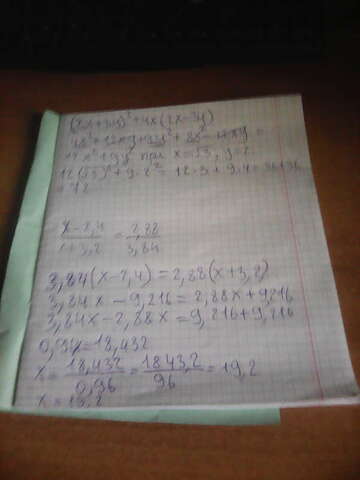 (2x+3y)²+4x(2x-3y)
4x²+12xy+9y²+8x²-12xy=
12x²+9y² при x=√3, y=2
12(√3)²+9·2²=12·3+9·4=36+36
=72
x-2,4/x+3,2=2,88/3,84
3,84(x-2,4)=2,88(x+3,2)
3,84x-9,216=2,88x+9,216
3,84x-2,88x=9,216+9,216
0,96x=18,432
x=18,432/0,96=1843,2/96=19,2
x=19,2